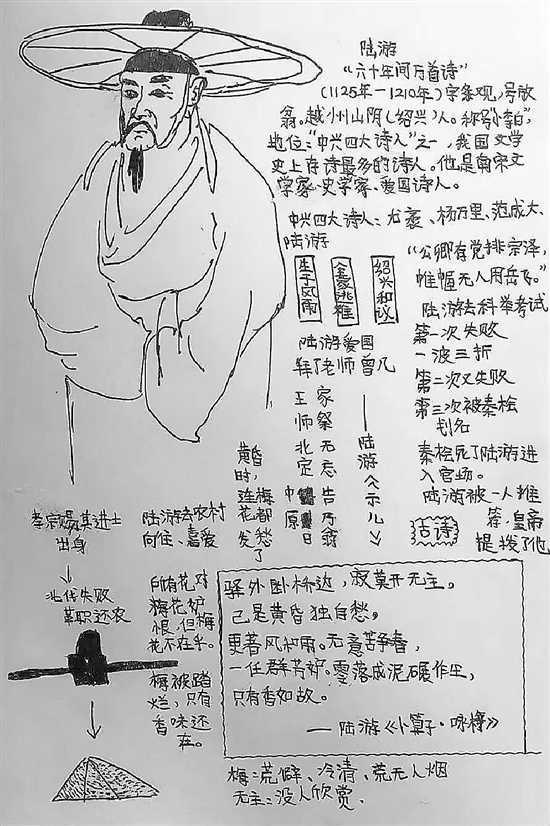 陆游
“六十年间万首诗”
(1125年-1210年)字务观,号放
翁。越州山阴(绍兴)人。称号“小李白”,
地位:“中兴四大诗人”之一,我国文学
史上存诗最多的诗人。他是南宋文
学家、史学家、爱国诗人。
中兴四大诗人:尤袤、杨万里、范成大、
陆游
生于风雨
绍兴和议
“公卿有党排宗泽,
帷幄无人用岳飞。”
陆游去科举考试
第一次失败
一波三折
第二次又失败
第三次被秦桧
划名
秦桧死了陆游进
入官场。
陆游被一人推
荐,皇帝
提拨了他
古诗
陆游爱国
拜了老师曾几
王师北定中原日
家祭无忘告乃翁
——陆游《示儿》
黄昏时,
连梅花都发愁了
孝宗赐其进士
出身
北伐失败
革职还农
陆游去农村
向往、喜爱
所有花对
梅花妒
恨,但梅
花不在乎。
梅被踏
烂,只有
香味还
在。
驿外断桥边,寂寞开无主。
已是黄昏独自愁,
更著风和雨。无意苦争春,
一任群芳妒。零落成泥碾作尘,
只有香如故。
——陆游《卜算子·咏梅》
梅:荒僻、冷清、荒无人烟
无主:没人欣赏.